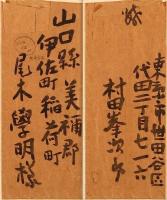 山口縣美禰郡
伊佐町稲荷町
尾木學明様
東京市世田谷区
代田二丁目七一六
村田峯次郎